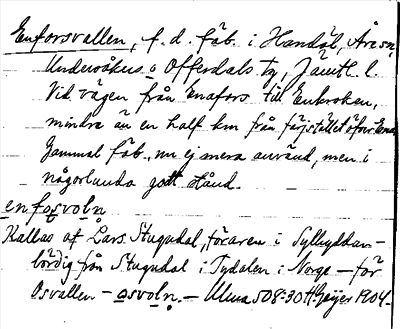 Enforsvallen, f. d. fäb. i Handöl, Åre sn,
Undersåkers o Offerdals tg, Jämtl. l.
Vid vägen från Enafors till Enkroken,
mindre än en half km från färjstället öfver Ena
Gammal fäb., nu ej mera använd, men i
någorlunda godt stånd.
enfosvoln
Kallas af Lars Stugudal, föraren i Sylhyddan –
bördig från Stugudal i Tydalen i Norge – för
Osvallen – osvoln. – Ulma 508:30 H Geijer 1904.